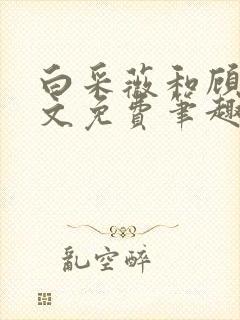 白采薇和顾
文免费笔趣
乱空醉